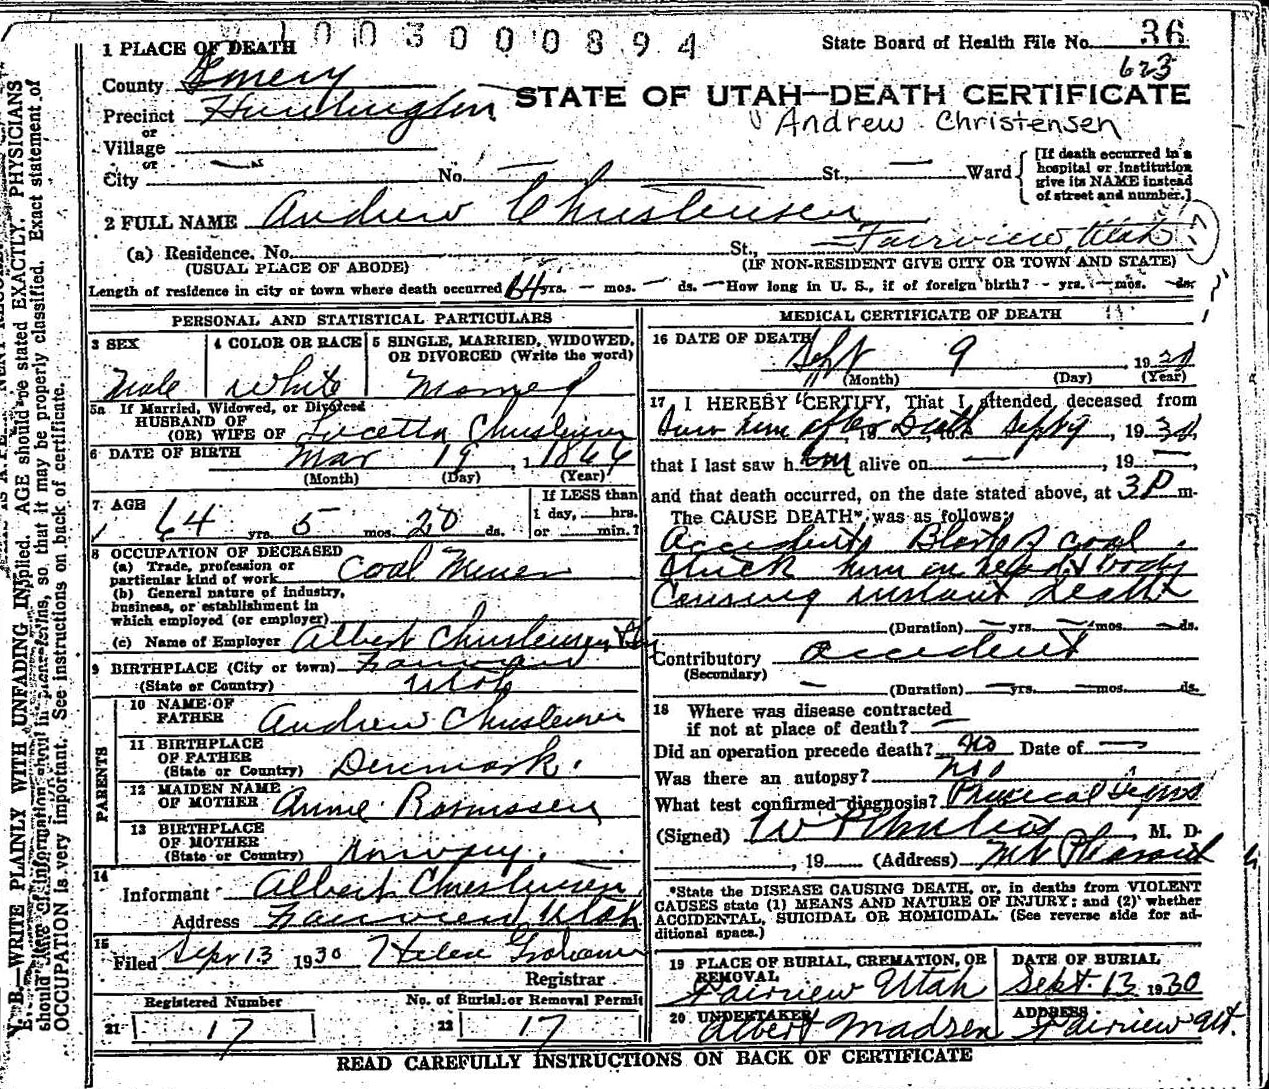 1003000894
1 PLACE OF DEATH
State Board of Health File No. 36
623
County Emery
STATE OF UTAH—DEATH CERTIFICATE
Precinct Huntington
Andrew Christensen
or
Village
or
City No. St., Ward
[If death occurred in a hospital or institution give its NAME instead of street and number.]
2 FULL NAME Andrew Christensen
(a) Residence. No. St., Fairview, Utah
(USUAL PLACE OF ABODE) (IF NON-RESIDENT GIVE CITY OR TOWN AND STATE)
Length of residence in city or town where death occurred 64 yrs. — mos. — ds. — How long in U. S., if of foreign birth? - yrs. — mos. — ds.
PERSONAL AND STATISTICAL PARTICULARS
3 SEX Male
4 COLOR OR RACE White
5 SINGLE, MARRIED, WIDOWED, OR DIVORCED (Write the word) Married
5a If Married, Widowed, or Divorced
HUSBAND OF
(OR) WIFE OF Lucetta Christensen
6 DATE OF BIRTH Mar 19, 1866
(Month) (Day) (Year)
7 AGE 64 yrs. 5 mos. 20 ds.
If LESS than
1 day, hrs.
or min.?
8 OCCUPATION OF DECEASED
(a) Trade, profession or
particular kind of work Coal Miner
(b) General nature of industry,
business, or establishment in
which employed (or employer)
(c) Name of Employer Albert Christensen
9 BIRTHPLACE (City or town) Fairview
(State or Country) Utah
PARENTS
10 NAME OF
FATHER Andrew Christensen
11 BIRTHPLACE
OF FATHER
(State or Country) Denmark.
12 MAIDEN NAME
OF MOTHER Annie Rasmussen
13 BIRTHPLACE
OF MOTHER
(State or Country) Norway.
14
Informant Albert Christensen
Address Fairview Utah
15
Filed Sept 13 1930 Helen
Registrar
Registered Number
No. of Burial or Removal Permit
21 17
22 17
MEDICAL CERTIFICATE OF DEATH
16 DATE OF DEATH Sept 9 1930
(Month) (Day) (Year)
17 I HEREBY CERTIFY, That I attended deceased from
Saw him after Death Sept 9, 1930
that I last saw him alive on — , 19 —
and that death occurred, on the date stated above, at 3 P m.
The CAUSE DEATH* was as follows:
Accident Blast of coal
struck him on head & body
Causing instant death
(Duration) — yrs. — mos. — ds.
Contributory accident
(Secondary)
— (Duration) — yrs. — mos. ds.
18 Where was disease contracted
if not at place of death? —
Did an operation precede death? No Date of —
Was there an autopsy? No
What test confirmed diagnosis? Physical signs
(Signed) M. D.
, 19 (Address) Mt Pleasant
*State the DISEASE CAUSING DEATH, or, in deaths from VIOLENT
CAUSES state (1) MEANS AND NATURE OF INJURY; and (2) whether
ACCIDENTAL, SUICIDAL OR HOMICIDAL. (See reverse side for ad-
ditional space.)
19 PLACE OF BURIAL, CREMATION, OR
REMOVAL
Fairview Utah
DATE OF BURIAL
Sept. 13 1930
20 UNDERTAKER
Albert Madsen
ADDRESS
Fairview Ut.
READ CAREFULLY INSTRUCTIONS ON BACK OF CERTIFICATE
N. B.—WRITE PLAINLY WITH UNFADING INK
supplied. AGE should be stated EXACTLY. PHYSICIANS
should so that it may be properly classified. Exact statement of
OCCUPATION is very important. See instructions on back of certificate.